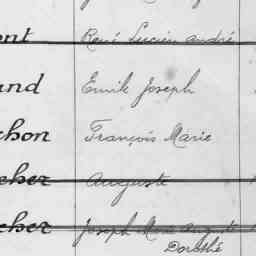 ont René Lucien André
and Emile Joseph
chon François Marie
cher Auguste
cher Joseph Marie Auguste
Dorothé